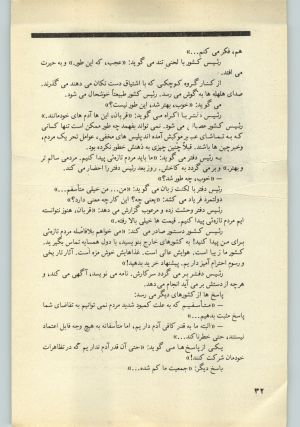 هم، فکر می کنم...»
رئیس کشور با لحنی تند می گوید: «عجب، که این طور.» و به حیرت
می افتد.
از کنار گروه کوچکی که با اشتیاق دست تکان می دهند می گذرند.
صدای هلهله ها به گوش می رسد. رئیس کشور طبیعتاً خوشحال می شود.
می گوید: «خوب، بهتر شد، این طور نیست؟»
رئیس دفتر با اکراه می گوید: «قربان، این ها آدم های خودمانند.»
رئیس کشور عصبانی می شود. نمی تواند بفهمد چه طور ممکن است تنها کسانی
که به تماشای عبور موکبش آمده اند پلیس های مخفی، عوامل تحریک مردم،
و خبرچین ها باشند. قبلاً چنین چیزی به ذهنش خطور نکرده بود.
به رئیس دفتر می گوید: «ما باید مردم تازه ئی پیدا کنیم. مردمی سالم تر
و بهتر.» و بر می گردد به کاخش. روز بعد رئیس دفتر را احضار می کند.
— «خوب، چه طور شد؟»
رئیس دفتر با لکنت زبان می گوید: «من... من خیلی متأسفم...»
دولتمرد فریاد می کشد: «یعنی چه؟ این کار چه معنی دارد؟»
رئیس دفتر وحشت زده و مرعوب گزارش می دهد: «قربان، هنوز نتوانسته
ایم مردم تازه ئی پیدا کنیم. قیمت ها خیلی بالا رفته.»
رئیس کشور دستور صادر می کند: «می خواهم بلافاصله مردم تازه ئی
برای من پیدا کنید! به کشورهای خارج بنویسید، با دول همسایه تماس بگیرید.
کشور ما زیبا است. هوایش عالی است. غذاهایش خوش مزه است. آثار تاریخی
و رسوم احترام آمیز داریم. پیشنهاد خرید بدهید!»
رئیس دفتر بر می گردد سر کارش. نامه می نویسد، آگهی می کند، و
هرچه از دستش بر می آید انجام می دهد.
پاسخ ها از کشورهای دیگر می رسد:
— «متأسفیم که به علت کمبود شدید مردم نمی توانیم به تقاضای شما
پاسخ مثبت بدهیم...»
— «البته ما به قدر کافی آدم داریم، اما متأسفانه به هیچ وجه قابل اعتماد
نیستند، حتی خطرناکند...»
یکی از پاسخ ها می گوید: «حتی آن قدر آدم نداریم که در تظاهرات
خودمان شرکت کنند!»
پاسخ دیگر: «جمعیت ما کم شده...»
۳۲